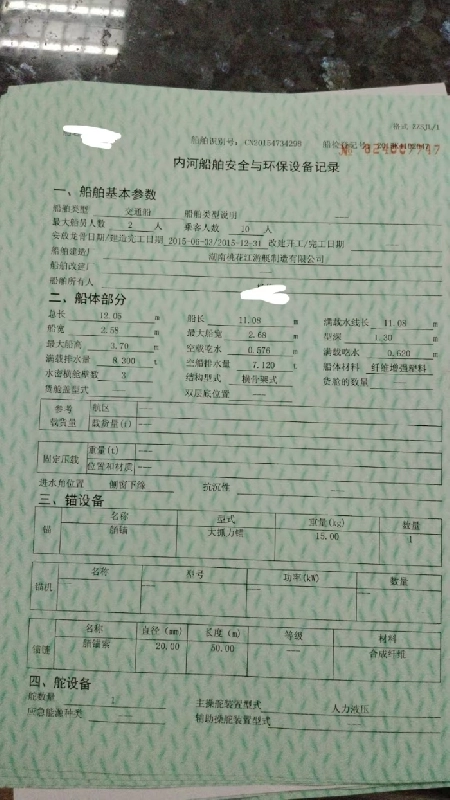 格式
船舶识别号：CN20154734298 船检登记号
内河船舶安全与环保设备记录
一、船舶基本参数
船舶类型 交通船 船舶类型说明 ——
最大船员人数 2 人 乘客人数 10 人
安放龙骨日期/建造完工日期 2015-06-32/2015-12-31 改建开工/完工日期 ——
船舶建造厂 湖南桃花江游艇制造有限公司
船舶改建厂
船舶所有人
二、船体部分
总长 12.06 m 船长 11.08 m 满载水线长 11.08 m
船宽 2.58 m 最大船宽 2.68 m 型深 1.30 m
最大船高 3.70 m 空载吃水 0.576 m 满载吃水 0.630 m
满载排水量 8.300 t 空船排水量 7.120 t 船体材料 纤维增强塑料
水密横舱壁数 3 结构型式 横骨架式 货舱的数量
货舱盖型式 —— 双层底位置 ——
参考载货量 航区 ——
载货量(t) ——
固定压载 重量(t) ——
位置和材质 ——
进水角位置 侧窗下缘 抗沉性 ——
三、锚设备
锚 名称 型式 重量(kg) 数量
艏锚 大抓力锚 15.00 1
锚机 名称 型号 功率(kW) 数量
锚链 名称 直径(mm) 长度(m) 等级 材料
艏锚索 20.00 50.00 —— 合成纤维
四、舵设备
舵数量 1 主操舵装置型式 人力液压
应急能源种类 —— 辅助操舵装置型式 ——